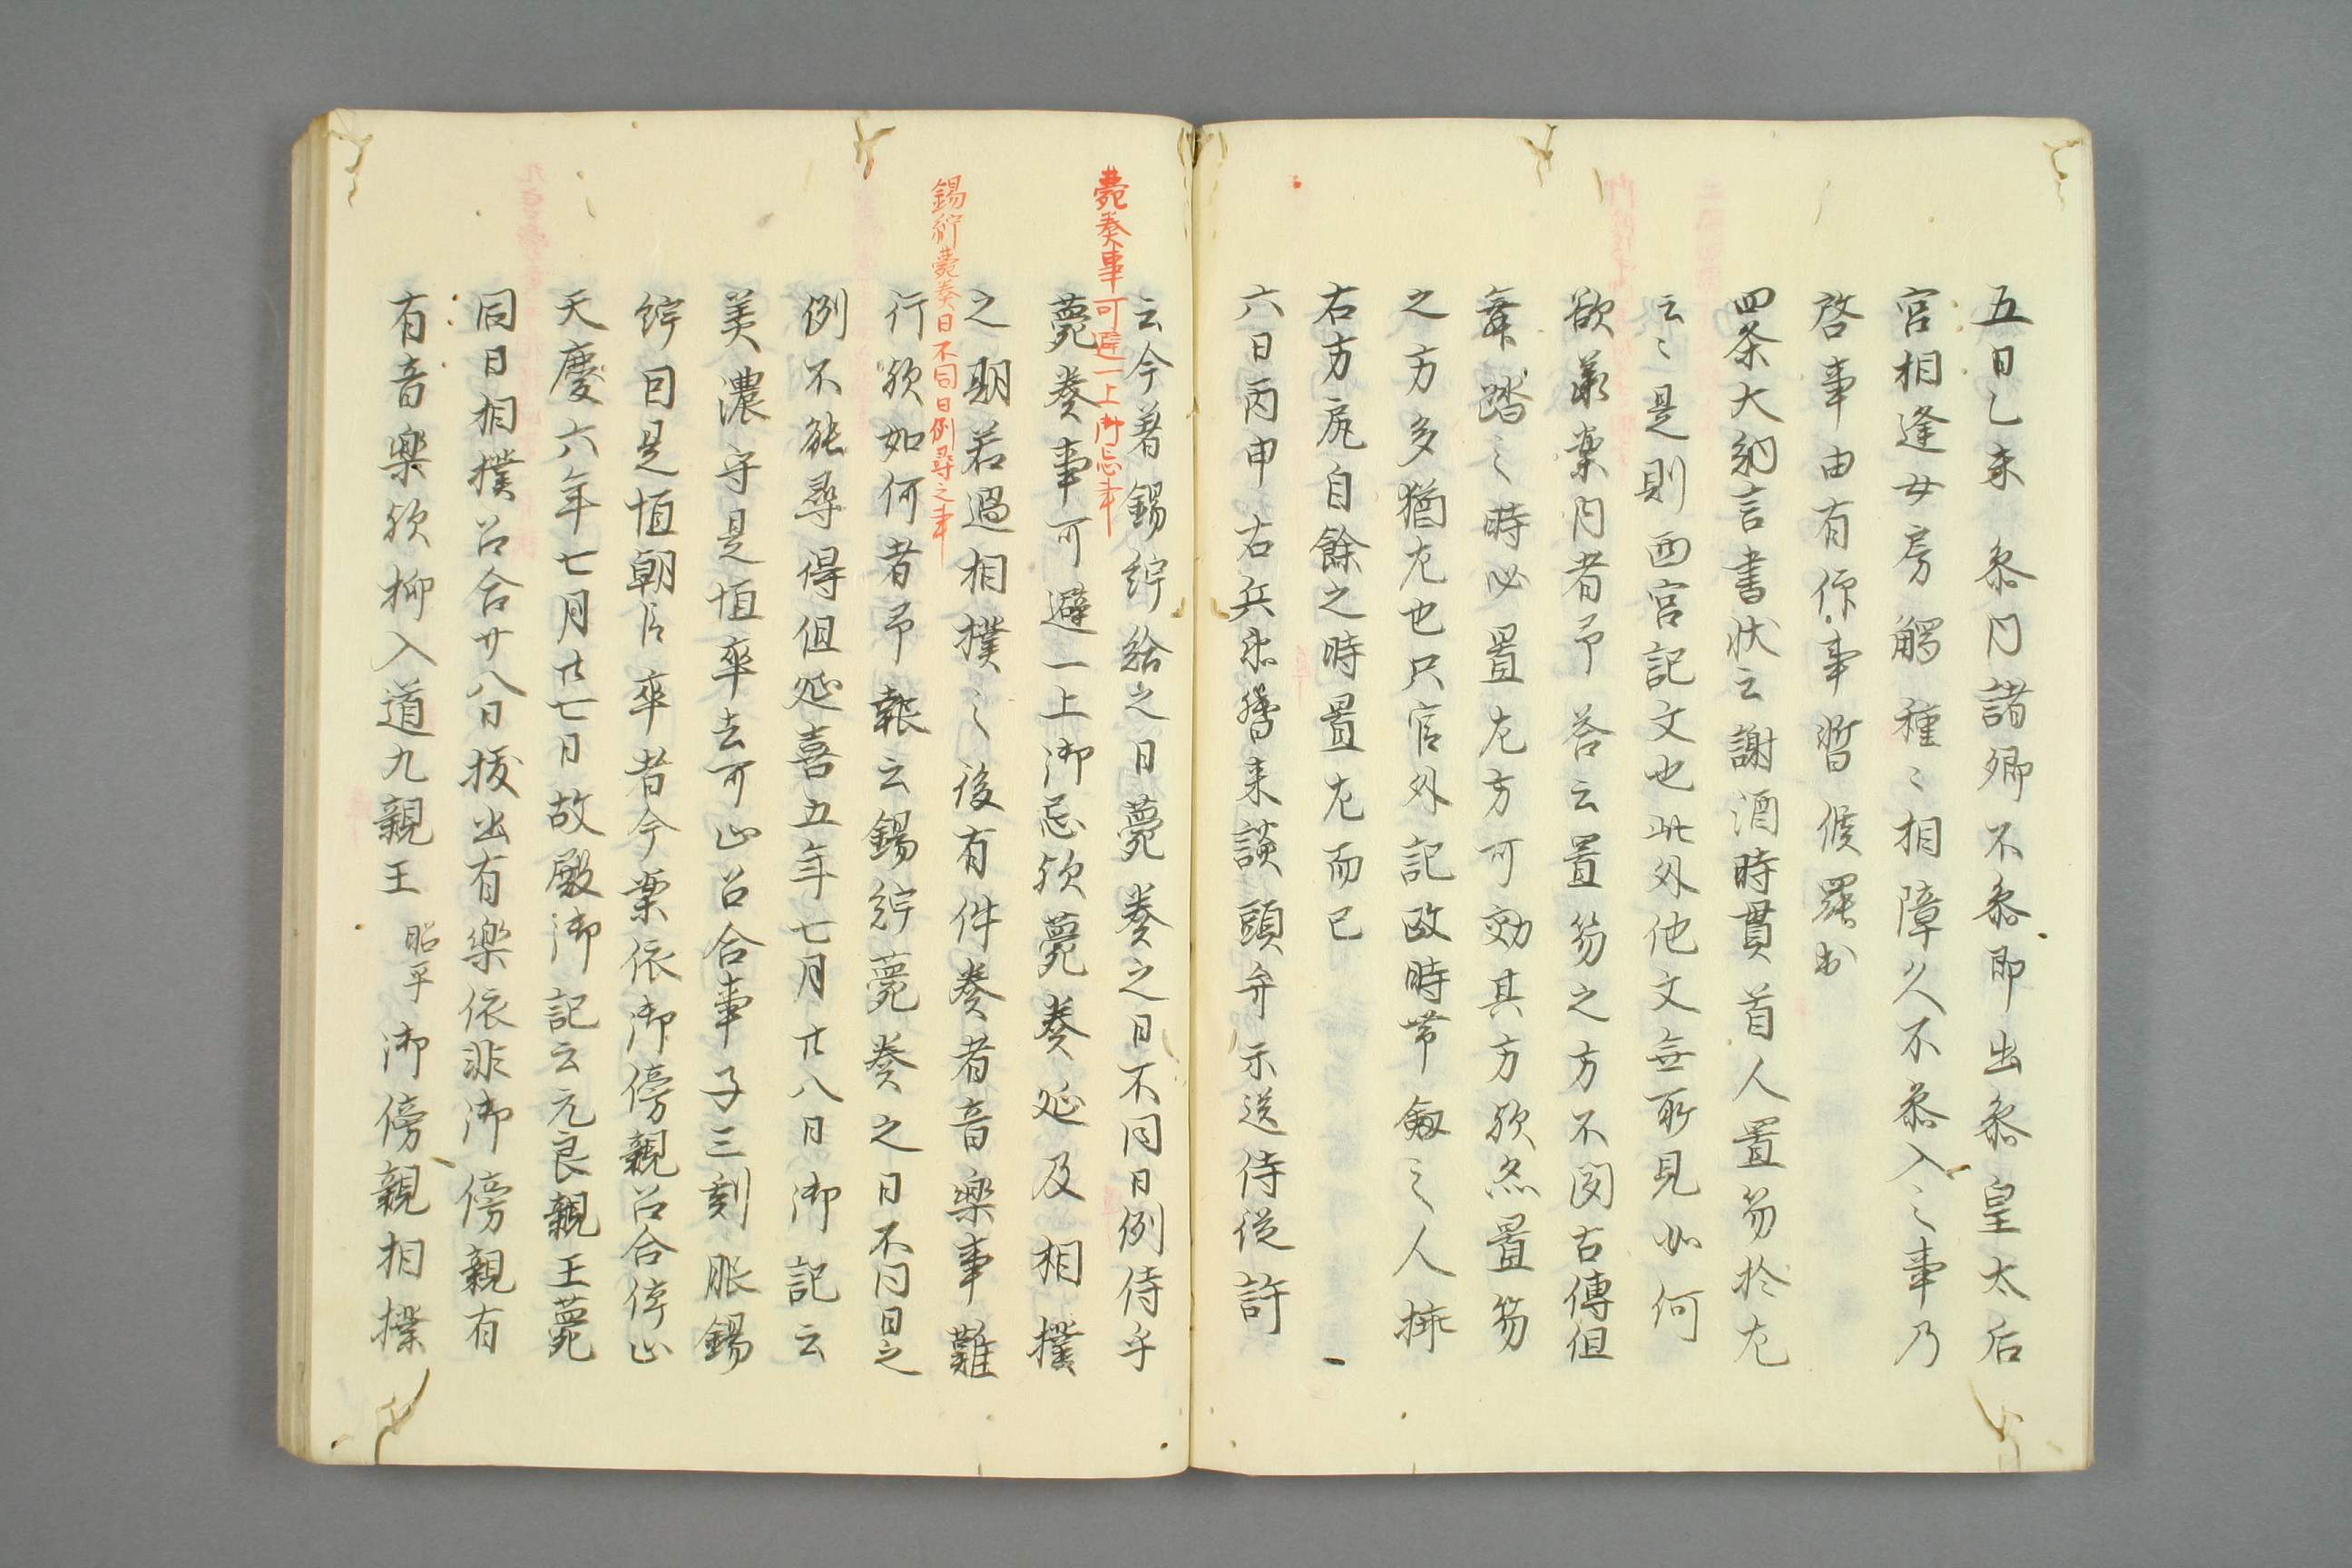 五日乙未 参内諸卿不参即出参皇太后
宮相逢女房觸種〻相障久不参入之事乃
啓事由有仰事暫候罷出
四条大納言書状云謝酒時貫首人置笏於左
云〻是則西宮記文也此外他文無所見如何
欲承案内者予答云置笏之方不聞古傳但
舞踏之時必置左方可効其方欤然置笏
之方多猶左也只官外記政時帯劔之人挿
右方尻自餘之時置左而已
六日丙申 右兵衛督来談頭弁示送侍従許
云今著錫紵給之日薨奏之日不同日例侍乎
薨奏事可避一上御忌欤薨奏延及相撲
之期若過相撲之後有件奏者音樂事難
行欤如何者予報云錫紵薨奏之日不同日之
例不能尋得但延喜五年七月廿八日御記云
美濃守是恒卒去可止召合事子三刻服錫
紵曰是恒朝臣卒者今案依御傍親召合停止
天慶六年七月廿七日故殿御記云元良親王薨
同日相撲召合廿八日拔出有樂依非御傍親有
有音樂欤抑入道九親王 昭平 御傍親相撲
薨奏事可避一上御忌事
錫紵薨奏日不同日例尋之事